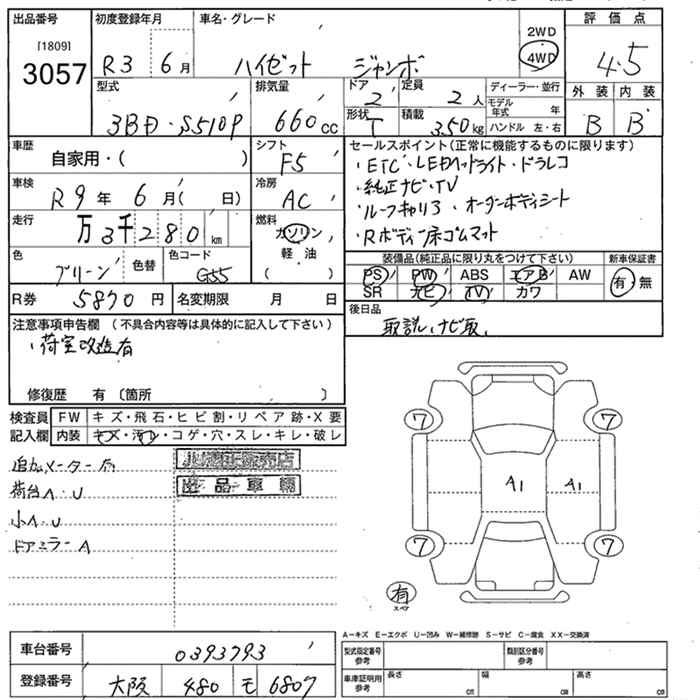 出品番号 初度登録年月 車名・グレード 2WD 評価点
[1809]
3057 R3 6月 ハイゼット ジャンボ 4WD 4.5
型式 排気量 ドア 定員 ディーラー・並行 外装 内装
2 2人 モデル年式 年
3BD-S510P 660cc 形状 T 積載 350kg ハンドル 左・右 B B
車歴 シフト セールスポイント(正常に機能するものに限ります)
自家用・( ) F5 ・ETC・LEDヘッドライト・ドラレコ
車検 冷房 ・純正ナビ・TV
R9年 6月( 日) AC ・ルーフキャリア・オーダーボディシート
走行 燃料 ・Rボディー床ゴムマット
万3千280km ガソリン
色 色替 色コード 軽油 装備品(純正品に限り丸をつけて下さい) 新車保証書
グリーン G55 ( ) PS PW ABS エアB AW 有・無
R券 5870円 名変期限 月 日 SR ナビ TV カワ
注意事項申告欄 (不具合内容等は具体的に記入して下さい) 後日品
・荷室改造有 取説、ナビ取
修復歴 有 〔箇所 〕
検査員 FW キズ・飛石・ヒビ割・リペア跡・X要
記入欄 内装 キズ・汚レ・コゲ・穴・スレ・キレ・破レ
追加メーター有
出品車輌
荷台A・U
小A・U
ドアミラーA
7 7
A1 A1
7 7
有
スペア
A-キズ E-エクボ U-凹み W-補修跡 S-サビ C-腐食 XX-交換済
車台番号 0393793 型式指定番号 参考 類別区分番号 参考
登録番号 大阪 480 モ 6807 車庫証明用 参考 長さ cm 幅 cm 高さ cm